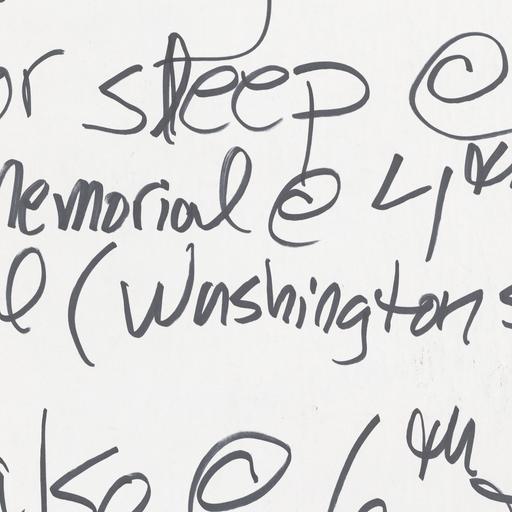 or sleep @
Memorial @ 4th
(Washington
@ 6th